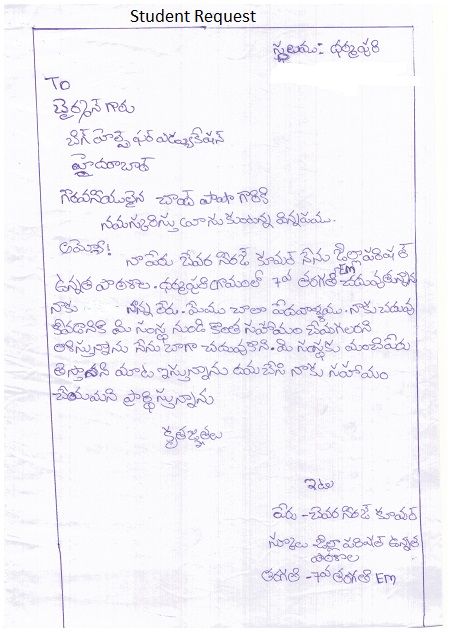 Student Request
స్థలము: ధర్మపురి
To
చైర్మన్ గారు
బిగ్ హెల్ప్ ఫర్ ఎడ్యుకేషన్
హైదరాబాద్
గౌరవనీయులైన చాంద్ పాషా గారికి
నమస్కరిస్తు యాసుకుంటున్న విన్నపము.
అయ్యా!
నా పేరు చేవర నీరజ్ కూమర్ నేను జిల్లాపరిషత్
ఉన్నత పాఠశాల. ధర్మపురి గ్రామంలో 7వ తరగతి Em చదువుతున్నాను
నాకు నాన్న లేరు. మేము చాలా పేదవాళ్ళము. నాకు చదువు
కోవడానికి మీ సంస్థ నుండి కొంత సహాయం చేయగలరని
ఆశిస్తున్నాను నేను బాగా చదువుకొని. మీ సంస్థకు మంచిపేరు
తెస్తానని మాట ఇస్తున్నాను దయచేసి నాకు సహాయం
చేయమని ప్రార్థిస్తున్నాను
కృతజ్ఞతలు
ఇట్లు
పేరు - చేవర నీరజ్ కూమర్
స్కూలు - జిల్లా పరిషత్ ఉన్నత
పాఠశాల
తరగతి - 7వ తరగతి Em